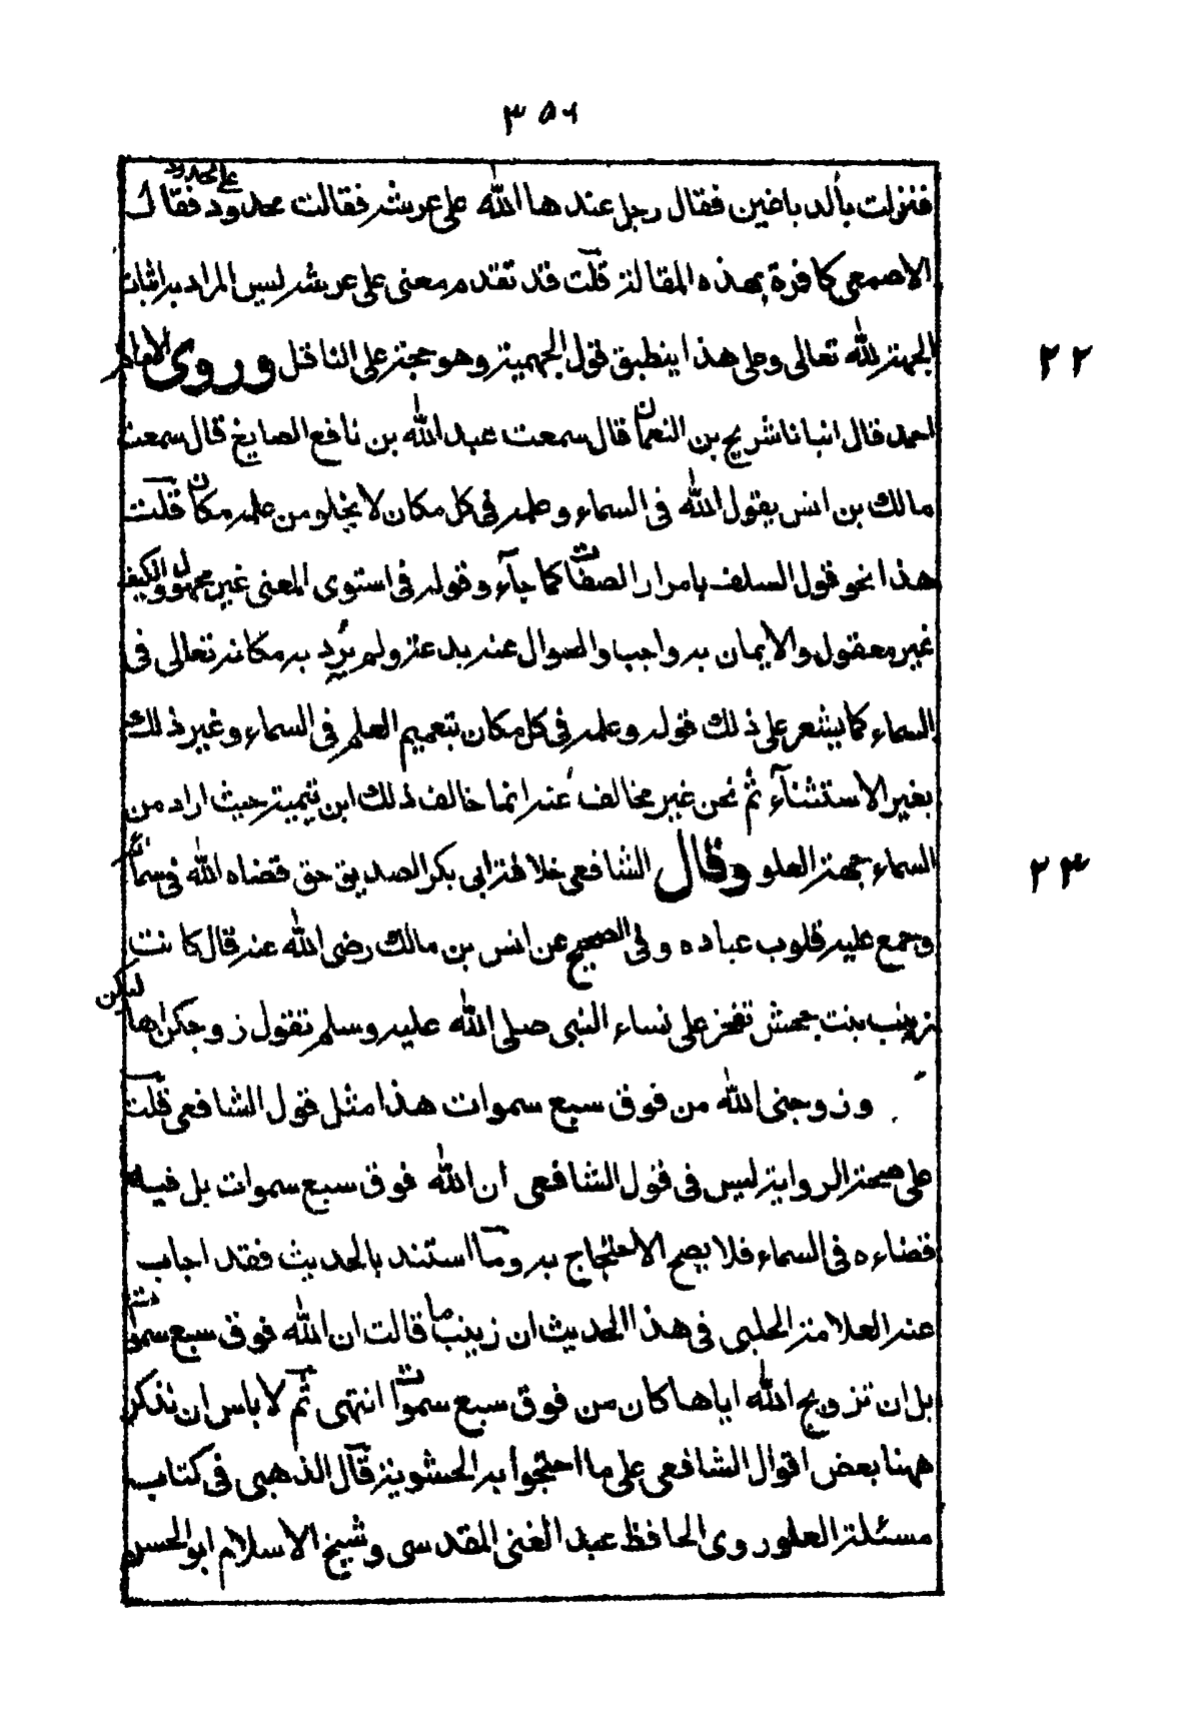 ٣٥٦
فنزلت بالدباغين فقال رجل عندها الله على عرشه فقالت محدود على محدود فقال
الاصمعي كافرة بهذه المقالة قلت قد تقدم معنى على عرشه ليس المراد به اثبات
الجهة لله تعالى وعلى هذا ينطبق قول الجهمية وهو حجة على الناقل وروى الامام
٢٢
احمد قال انبانا شريح بن النعمان قال سمعت عبد الله بن نافع الصايغ قال سمعت
مالك بن انس يقول الله فى السماء وعلمه فى كل مكان لا يخلو من علمه مكان قلت
هذا نحو قول السلف بامرار الصفات كما جآء وقوله فى استوى المعنى غير مجهول والكيف
غير معقول والايمان به واجب والسوال عنه بدعة ولم يُرِد به مكانه تعالى فى
السماء كما يشعر على ذلك قوله وعلمه فى كل مكان بتعميم العلم فى السماء وغير ذلك
بغير الاستثنآء ثم نحن غير مخالف عنه انما خالف ذلك ابن تيمية حيث اراد من
السماء جهة العلو وقال الشافعى خلافة ابى بكر الصديق حق قضاه الله فى سمائه
٢٣
وجمع عليه قلوب عباده وفى الصحيح عن انس بن مالك رضى الله عنه قال كانت
زينب بنت جحش تفخر على نساء النبى صلى الله عليه وسلم تقول زوجكن اهاليكن
وزوجنى الله من فوق سبع سموات هذا مثل قول الشافعى قلت
على صحة الرواية ليس فى قول الشافعى ان الله فوق سبع سموات بل فيه
قضاءه فى السماء فلا يصح الاحتجاج به وما استند بالحديث فقد اجاب
عنه العلامة الحلبى فى هذا الحديث ان زينب ما قالت ان الله فوق سبع سموات
بل ان تزويج الله اياها كان من فوق سبع سموات انتهى ثم لا باس ان نذكر
ههنا بعض اقوال الشافعى على ما احتجوا به الحشوية قال الذهبى فى كتاب
مسئلة العلو روى الحافظ عبد الغنى المقدسى وشيخ الاسلام ابو الحسن